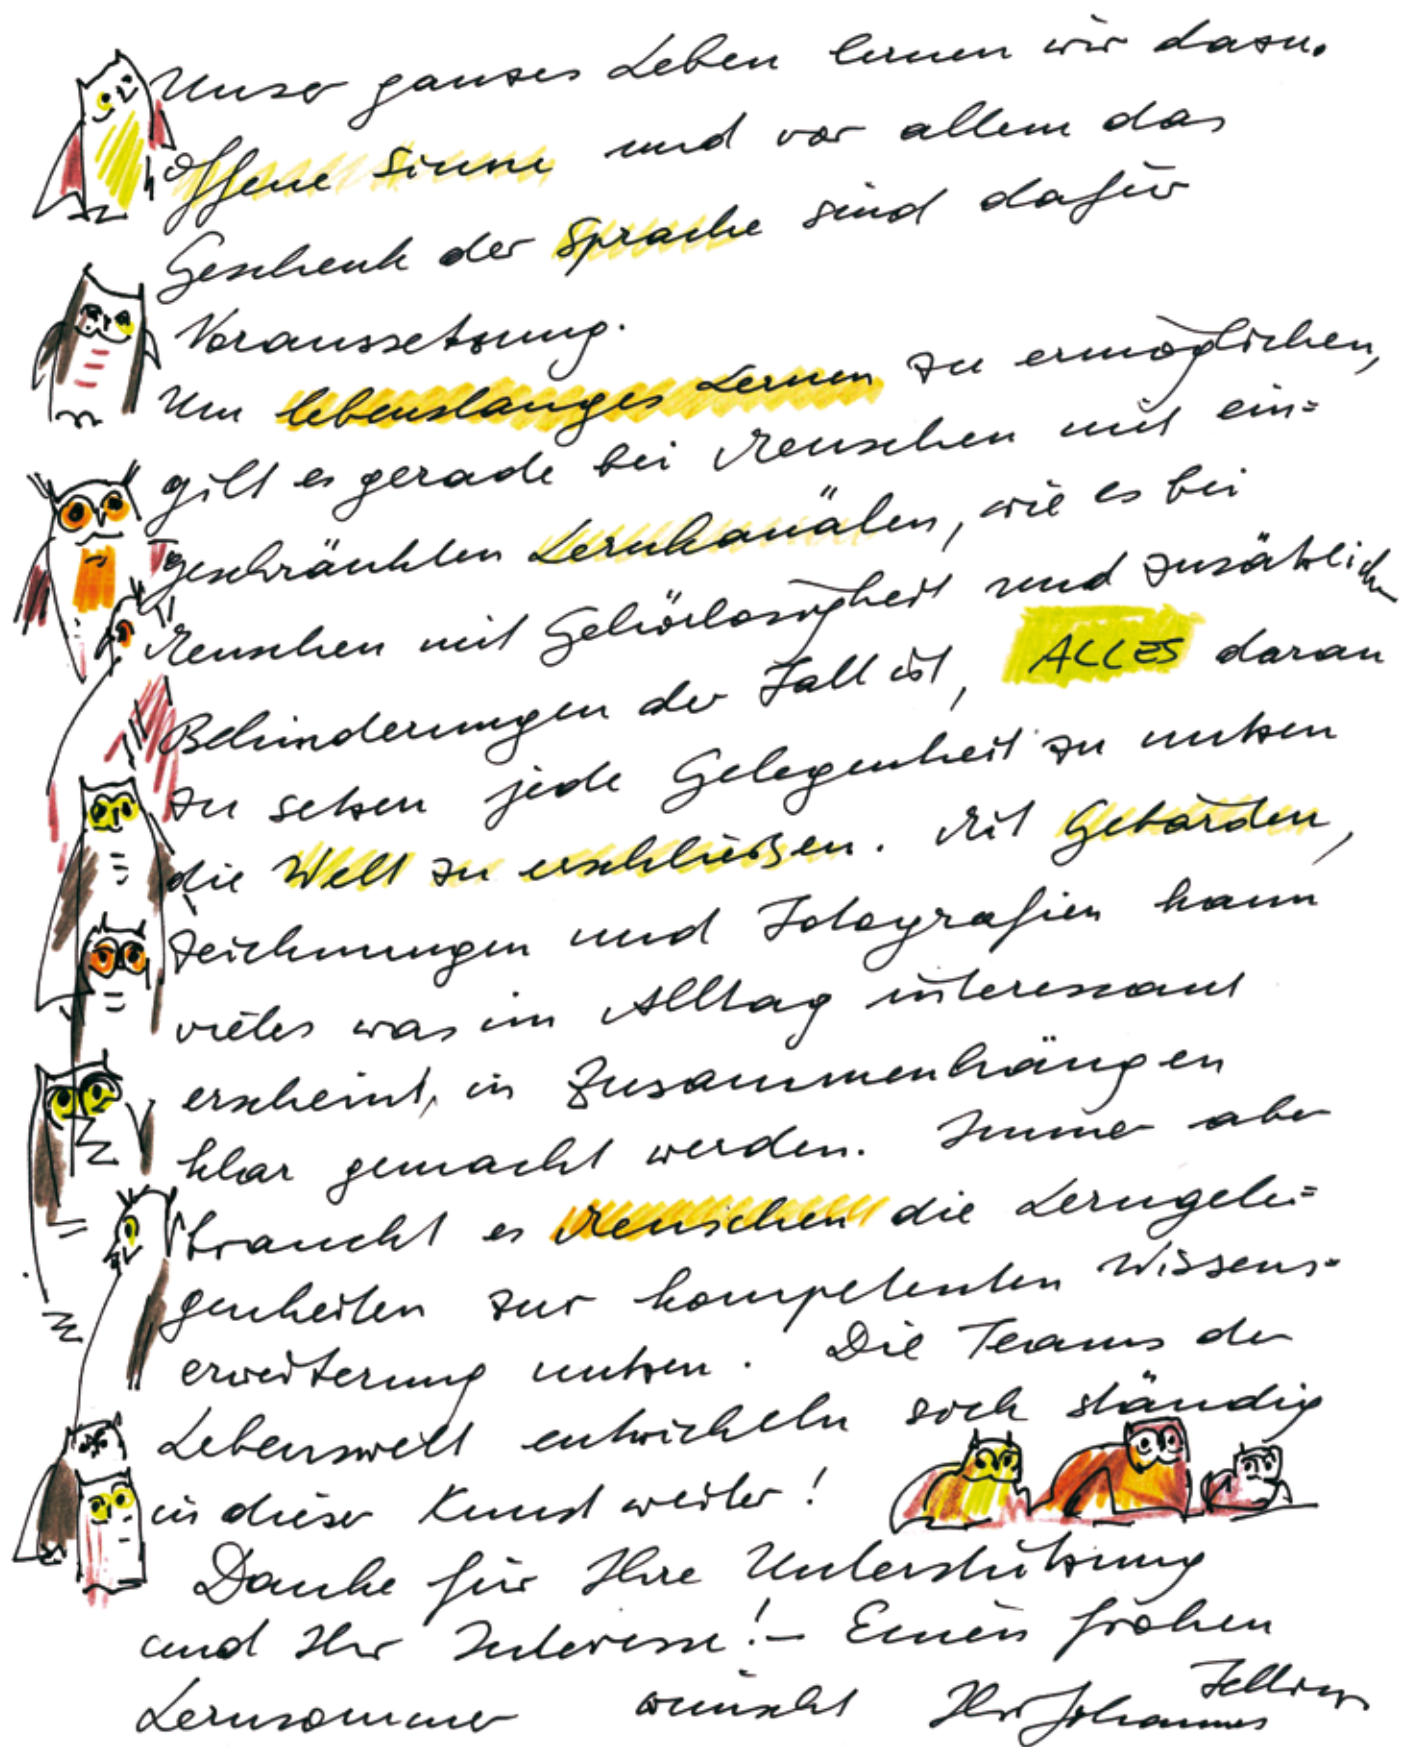 Unser ganzes Leben lernen wir dazu.
Offene Sinne und vor allem das
Geschenk der Sprache sind dafür
Voraussetzung.
Um lebenslanges Lernen zu ermöglichen,
gilt es gerade bei Menschen mit ein=
geschränkten Lernkanälen, wie es bei
Menschen mit Gehörlosigkeit und zusätzlichen
Behinderungen der Fall ist, ALLES daran
zu setzen jede Gelegenheit zu nutzen
die Welt zu erschließen. Mit Gebärden,
Zeichnungen und Fotografien kann
vieles was im Alltag interessant
erscheint, in Zusammenhängen
klar gemacht werden. Immer aber
braucht es Menschen die Lerngele=
genheiten zur kompetenten Wissens=
erweiterung nutzen. Die Teams der
Lebenswelt entwickeln sich ständig
in dieser Kunst weiter!
Danke für Ihre Unterstützung
und Ihr Interesse! – Einen frohen
Lernsommer wünscht Ihr Johannes Fellinger